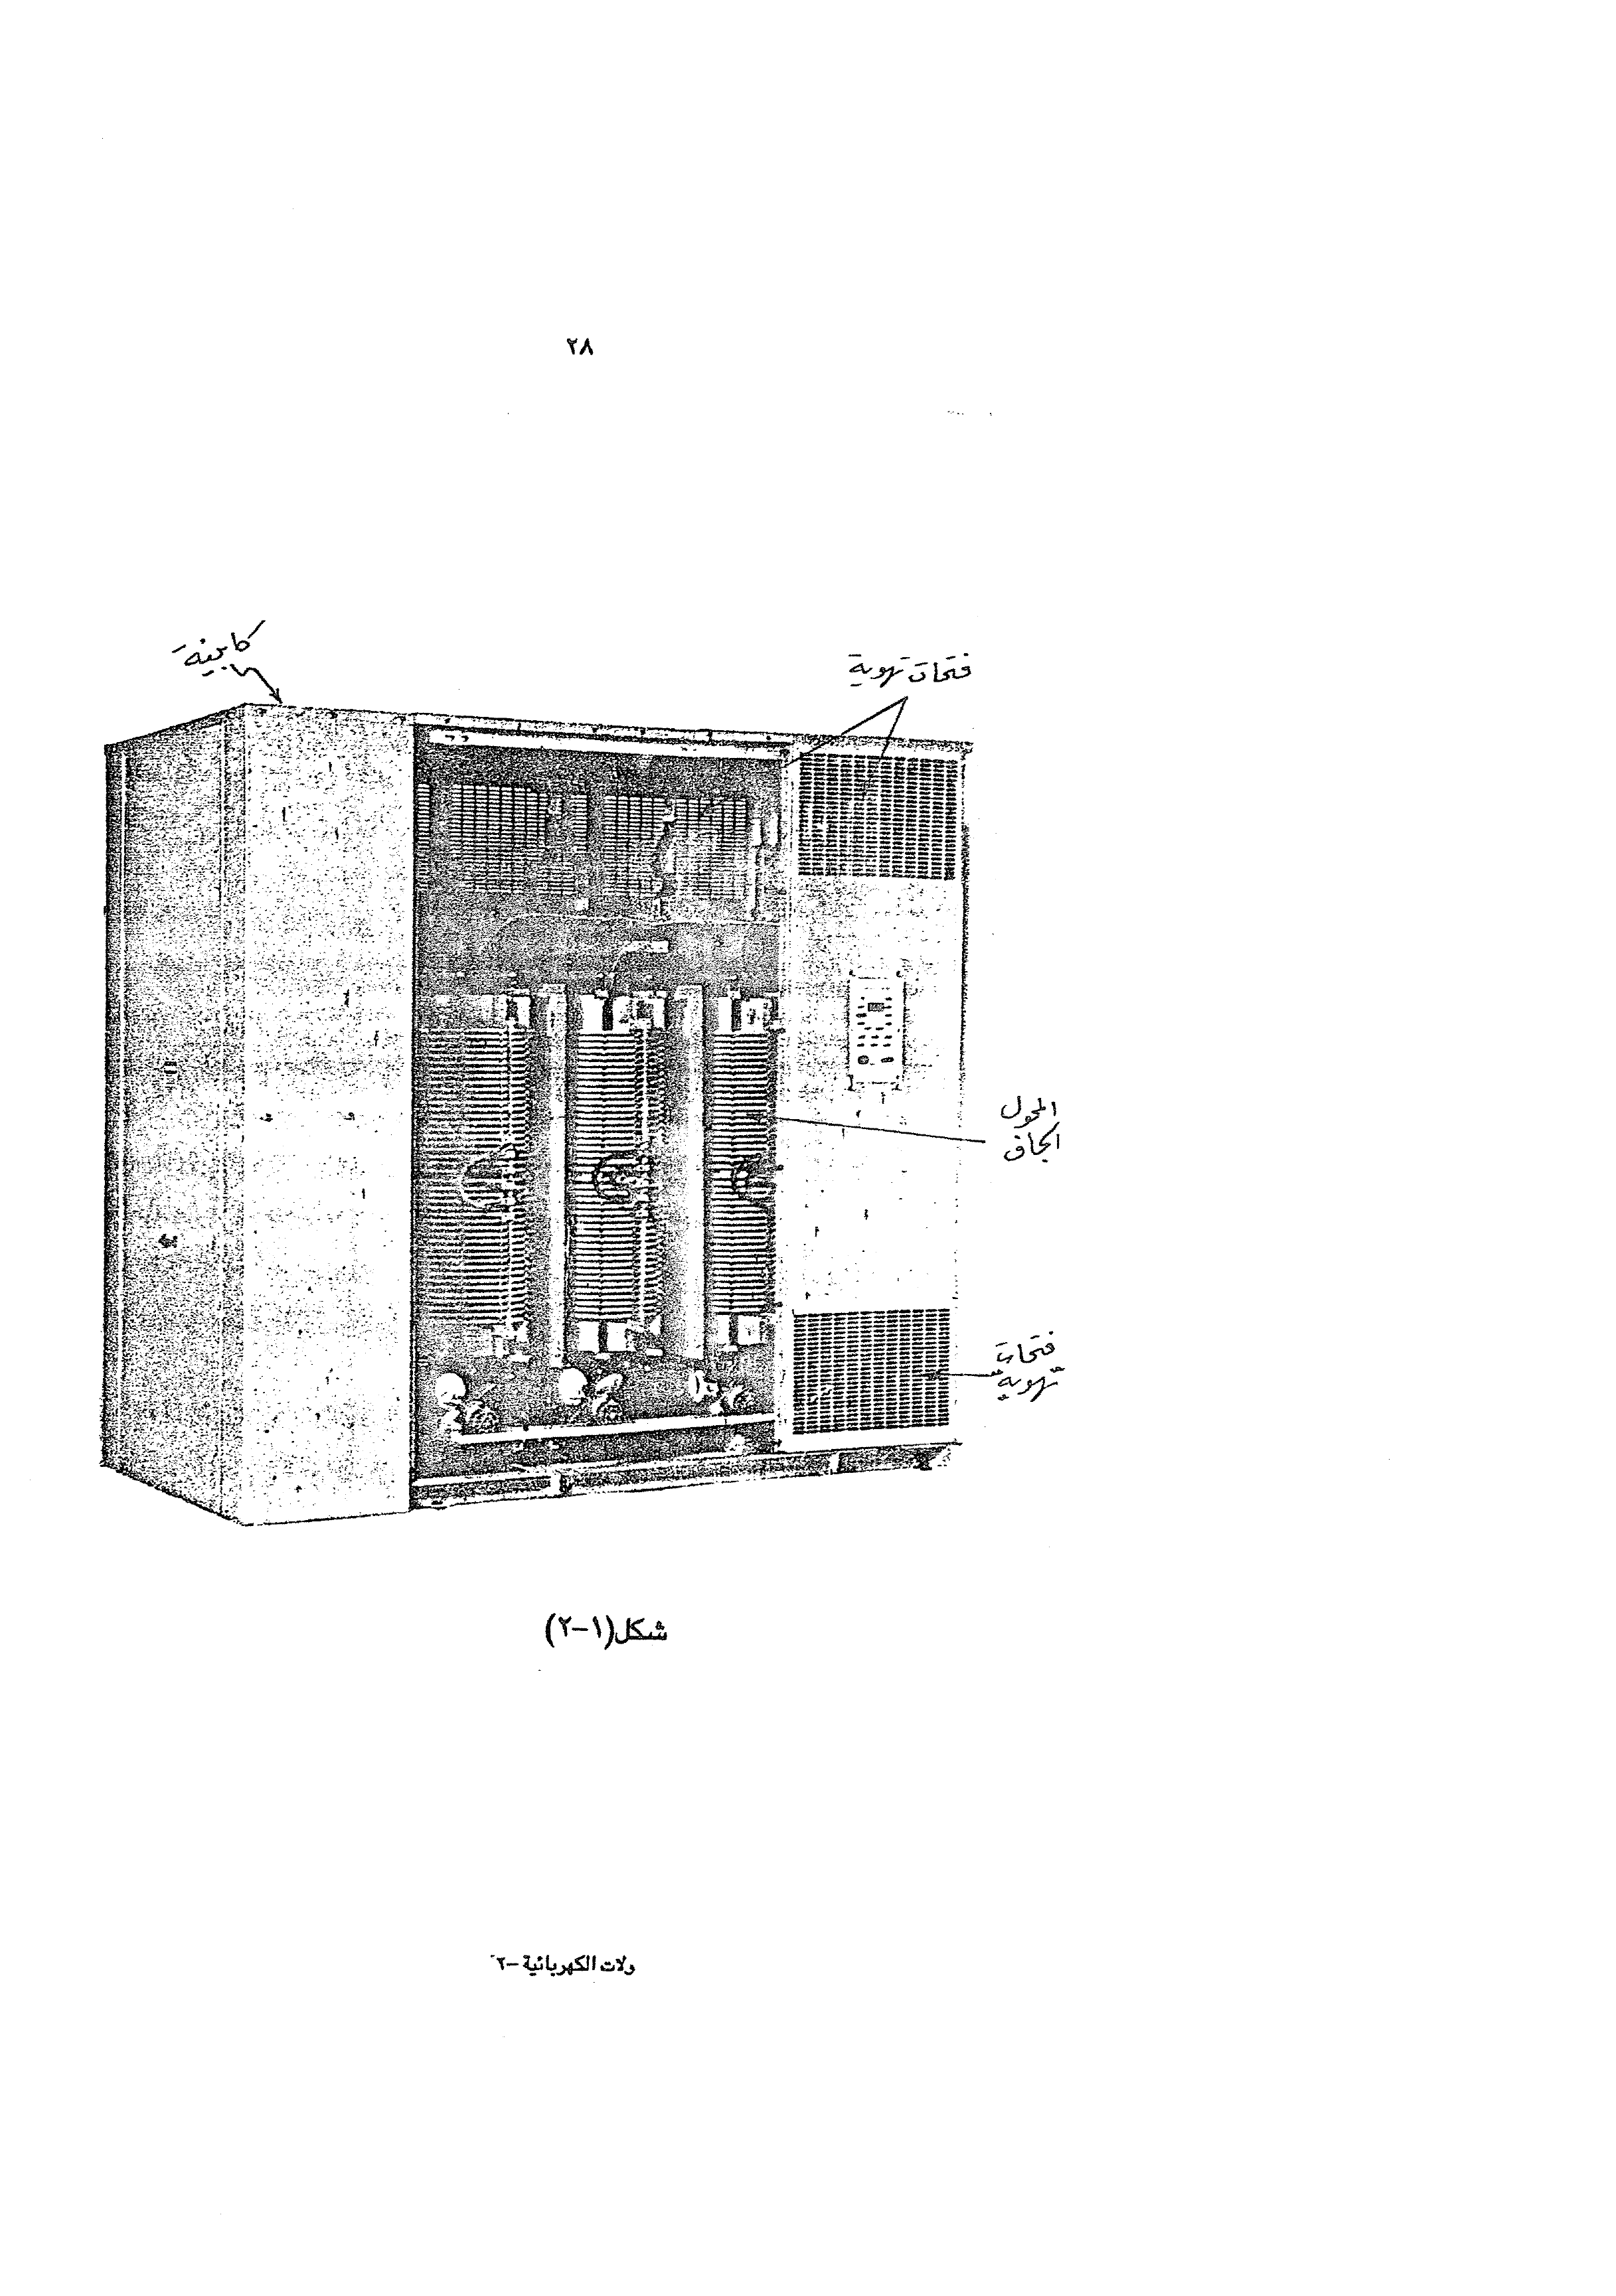 ٢٨
كابينة
فتحات تهوية
المحول
الجاف
فتحات
تهوية
شكل(١-٢)
ولات الكهربائية -٢